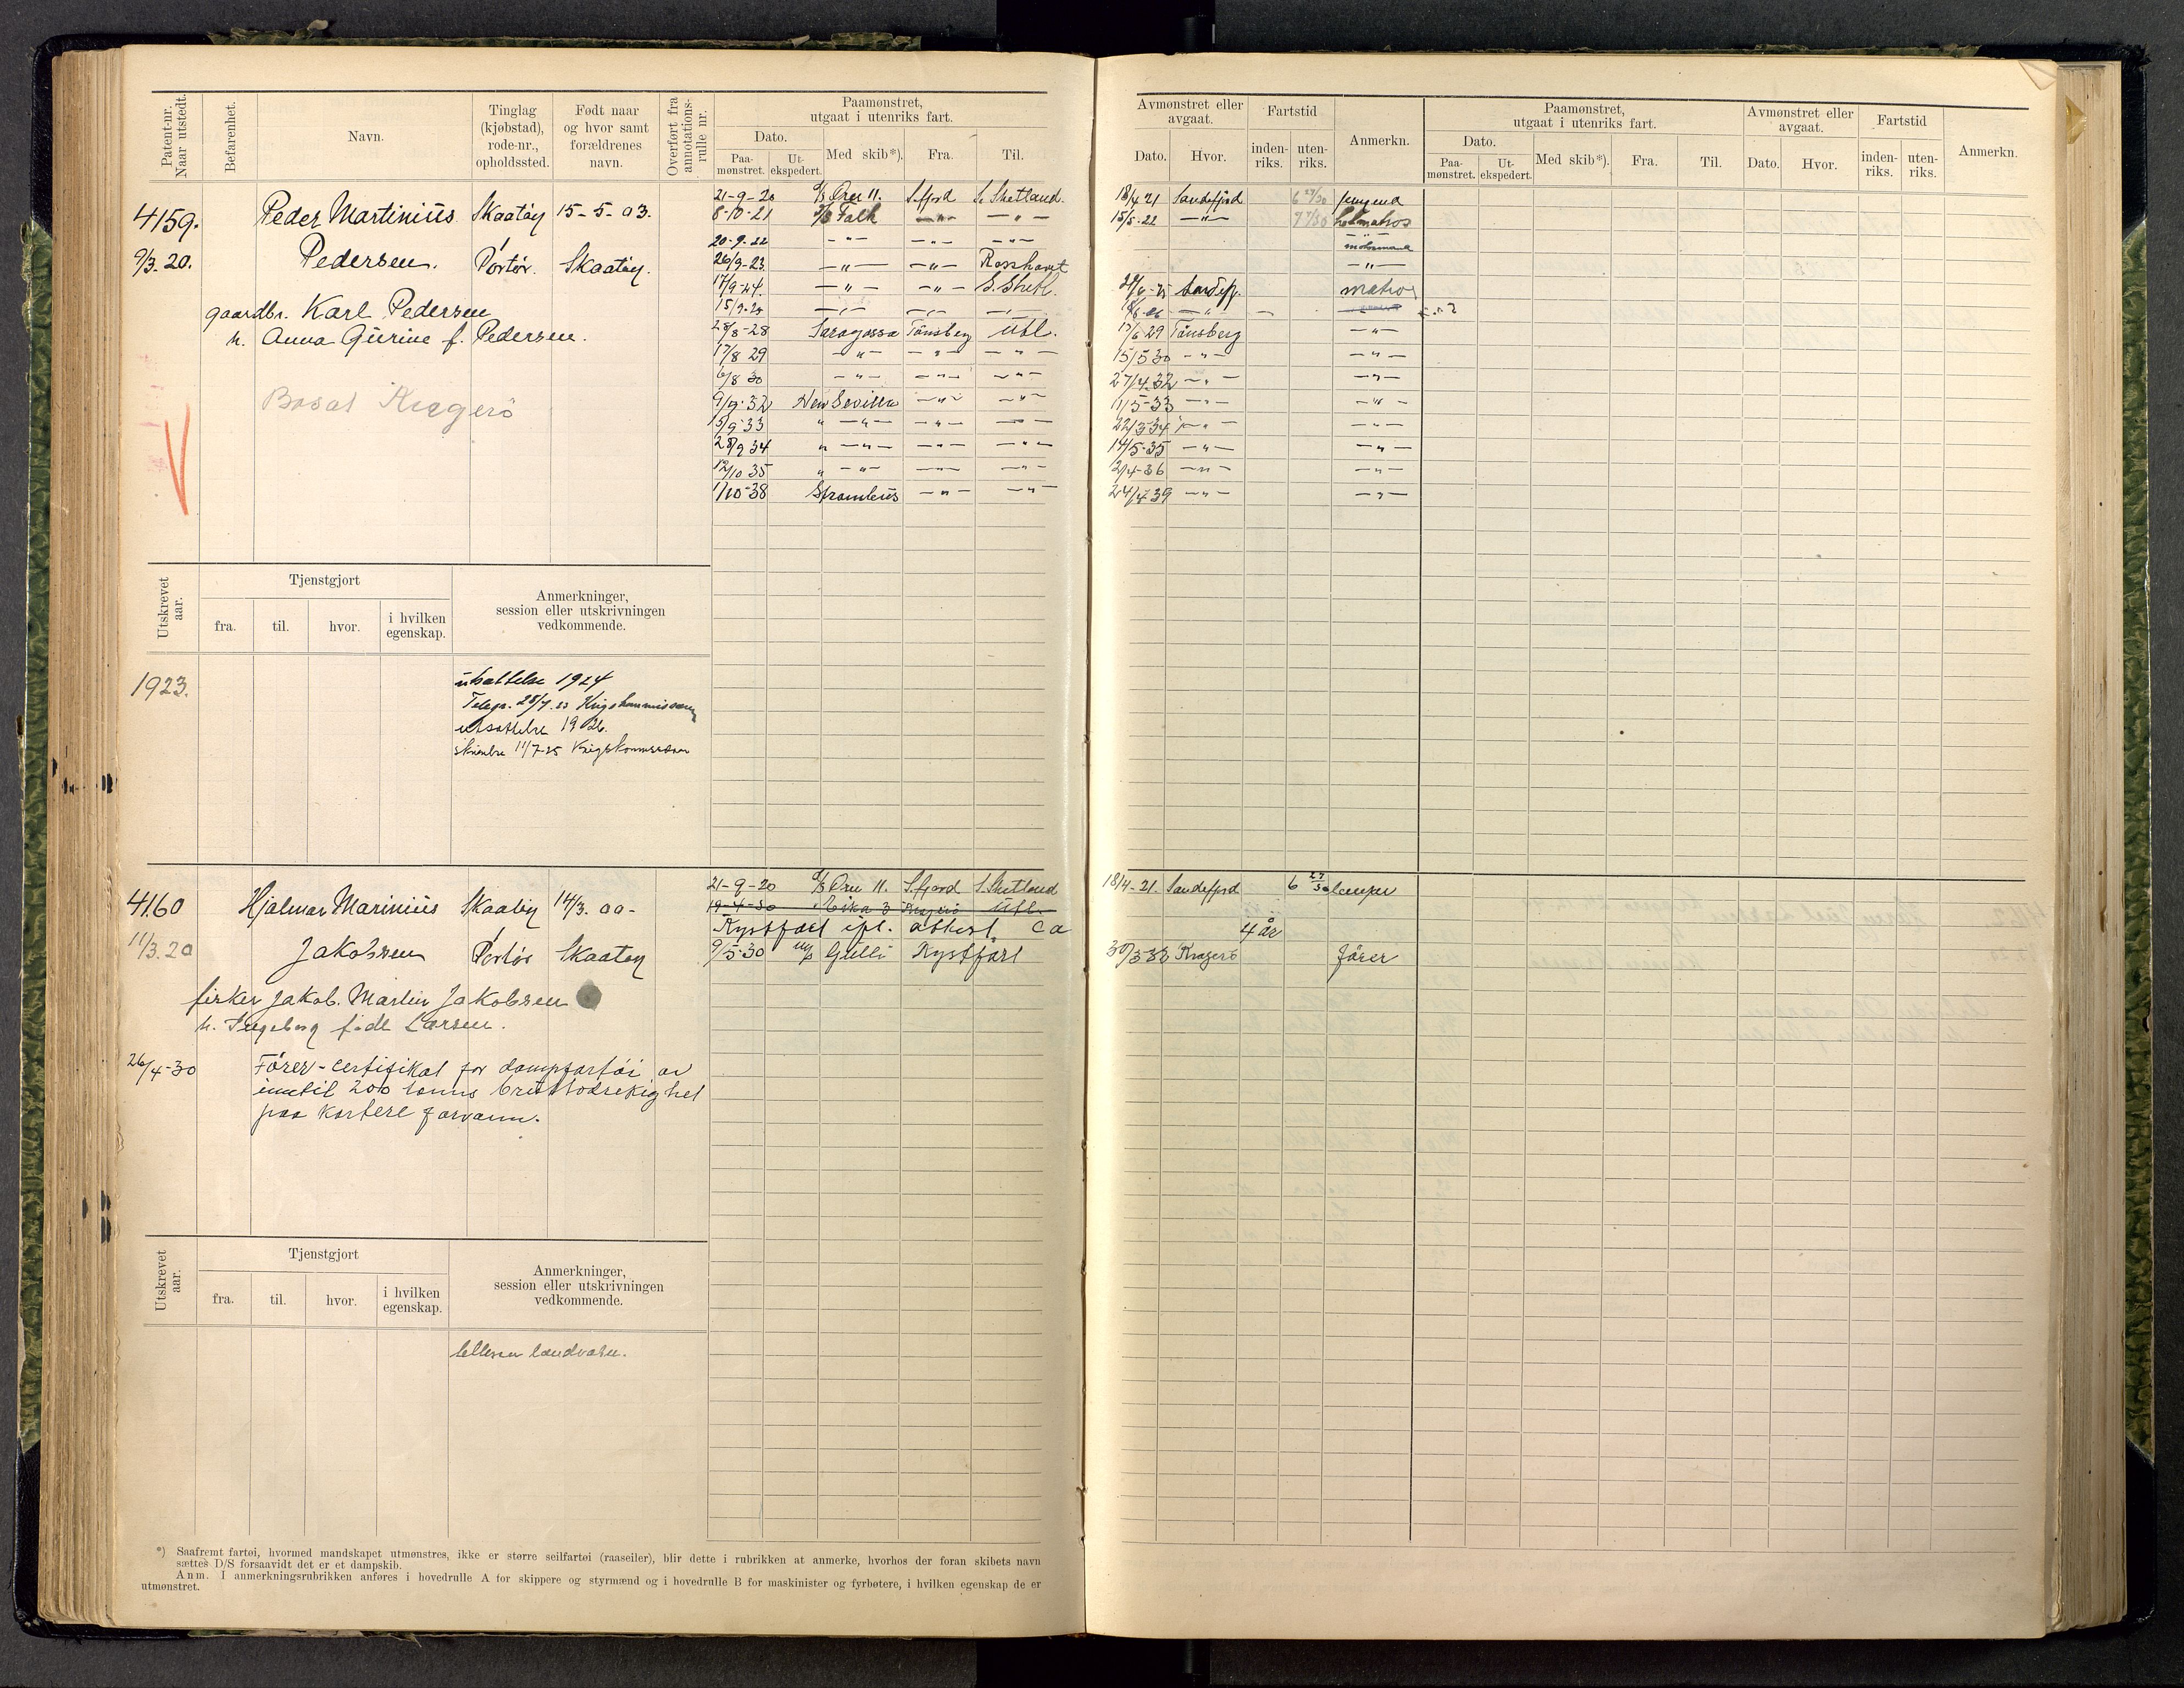 Patent-nr. Naar utstedt.
Befarenhet.
Navn.
Tinglag (kjøbstad), rode-nr., opholdssted.
Født naar og hvor samt forældrenes navn.
Overført fra annotations-rulle nr.
Paamønstret, utgaat i utenriks fart.
Dato.
Paa-mønstret.
Ut-ekspedert.
Med skib*).
Fra.
Til.
Avmønstret eller avgaat.
Dato.
Hvor.
Fartstid
inden-riks.
uten-riks.
Anmerkn.
Paamønstret, utgaat i utenriks fart.
Dato.
Paa-mønstret.
Ut-ekspedert.
Med skib*).
Fra.
Til.
Avmønstret eller avgaat.
Dato.
Hvor.
Fartstid
inden-riks.
uten-riks.
Anmerkn.
4159. Peder Martinius Skaatøy 15-5-03.
9/3.20. Pedersen. Portør. Skaatøy.
gaardbr. Karl Pedersen
h. Anna Gurine f. Pedersen.
Bosat Kragerö
21-9-20 Ørn II. S.fjord S. Shetland. 18/4 21 Sandefjord 6 27/30
8-10-21 Falk —"— —"— 15/5-22 —"—
20-9-22 —"— —"— —"—
26/9-23 —"— —"— Rosshavet —"—
17/9-24. —"— —"— S. Shetl. Sandefj. matros
—"— —"— —"—
28/8-28 Saragossa Tönsberg Utl. 29 Tönsberg —"—
17/8 29 —"— —"— —"— 15/5 30 —"— —"—
6/8 30 —"— —"— —"— 27/4.32 —"— —"—
9/9.32 New Sevilla —"— —"— 11/5-33 —"— —"—
15/9.33 "—"— —"— —"— 22/3 34 —"— —"—
28/9 34 "—"— —"— —"— 14/5.35 —"— —"—
12/10 35 "—"— —"— —"— 2/4-36 —"— —"—
1/10-38 Strombus —"— —"— 24/4 39 —"— —"—
Utskrevet aar.
Tjenstgjort
fra.
til.
hvor.
i hvilken egenskap.
Anmerkninger, session eller utskrivningen vedkommende.
1923.
utsættelse 1924
Telegr. 28/7.23
utsættelse 1926.
11/7-25
4160 Hjalmar Marinius Skaatöy 14/3. 00-
11/3.20 Jakobsen Portør Skaatøy
fisker Jakob Martin Jakobsen
h. Ingeborg födt Larsen.
26/4-30 Förer-certifikat for dampfartöi av
inntil 200 tonns bruttodrektighet
paa kortere farvann.
21-9-20 Ørn II. S.fjord S. Shetland 18/4-21. Sandefjord 6 27/30 lemper
19-4-30 Utl.
Kystfart ifl. attest ca 4 år
9/5-30 Gulli Kystfart 30/3-33 Kragerö Förer
Utskrevet aar.
Tjenstgjort
fra.
til.
hvor.
i hvilken egenskap.
Anmerkninger, session eller utskrivningen vedkommende.
landværn.
*) Saafremt fartøi, hvormed mandskapet utmønstres, ikke er større seilfartøi (raaseiler), blir dette i rubrikken at anmerke, hvorhos der foran skibets navn
sættes D/S forsaavidt det er et dampskib.
Anm. I anmerkningsrubrikken anføres i hovedrulle A for skippere og styrmænd og i hovedrulle B for maskinister og fyrbøtere, i hvilken egenskap de er
utmønstret.